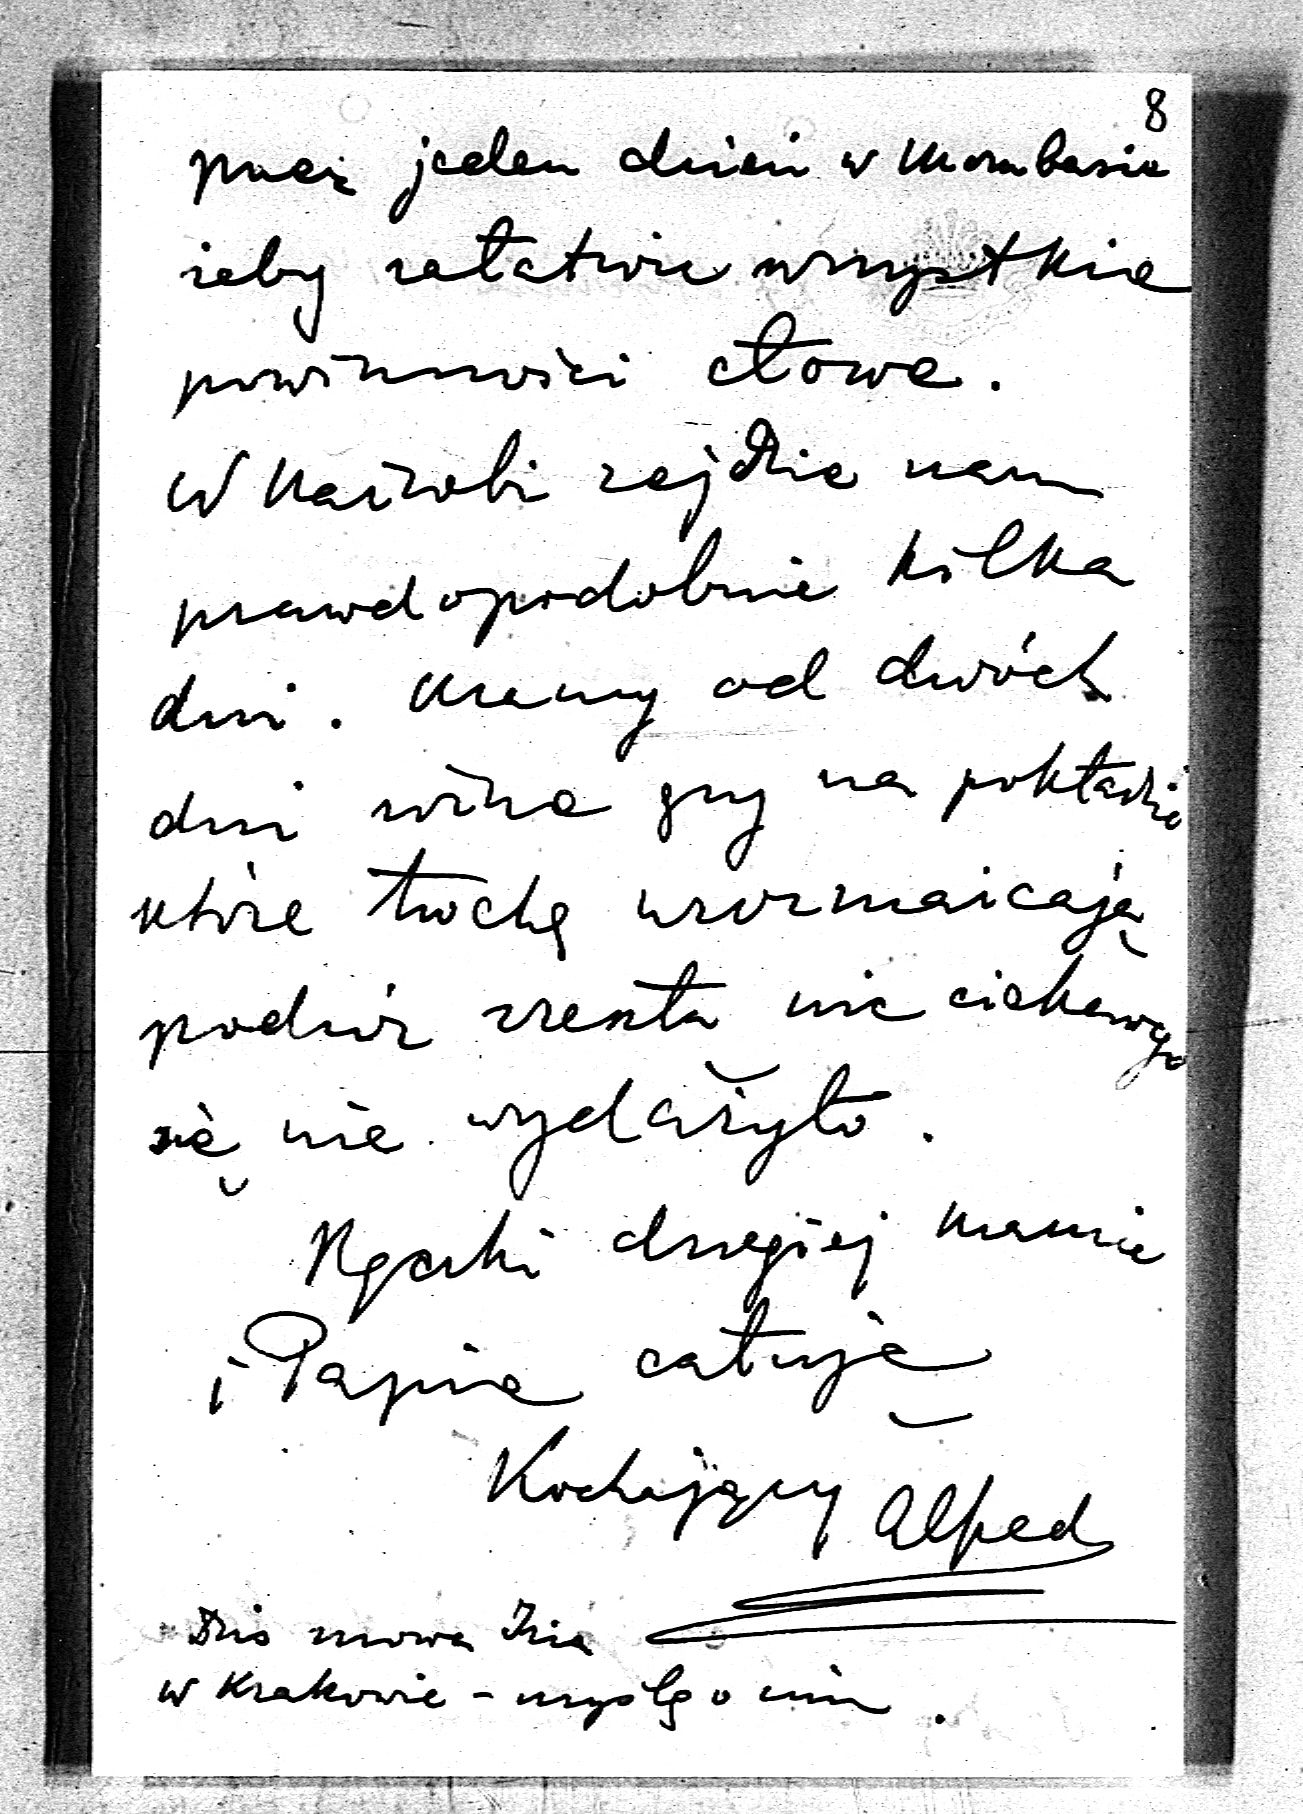 8
przez jeden dzień w Mombasie
żeby załatwić wszystkie
powinności cłowe.
W Nairobi zejdzie nam
prawdopodobnie kilka
dni. Mamy od dwóch
dni różne gry na pokładzie
które trochę urozmaicają
podróż zresztą nic ciekawego
się nie wydarzyło.
Rączki drogiej Mamie
i Papie całuję
Kochający Alfred
Dziś mowa
w Krakowie – myślę o nim.